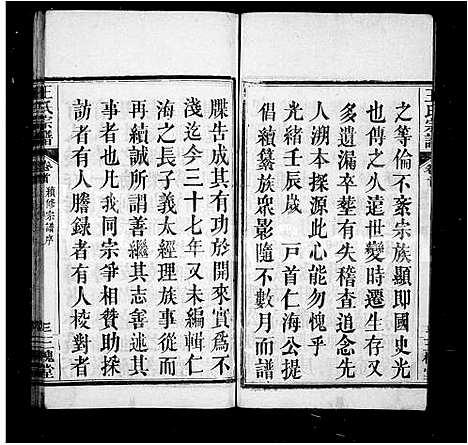 之等倫不紊宗族顯即國史光
也傳之久遠世變時遷生存又
多遺漏卒塟有失稽查追念先
人溯本探源此心勿愧乎
光緒壬辰歲　戶首仁海公提
倡續纂族衆影隨不數月而譜
牒告成其有功於開來實爲不
淺迄今三十七年又未編輯仁
海之長子義太經理族事從而
再續誠所謂善繼其志善述其
事者也凡我同宗爭相贊助採
訪者有人謄録者有人校對者
王氏宗譜
卷首
續修宗譜序
三槐堂